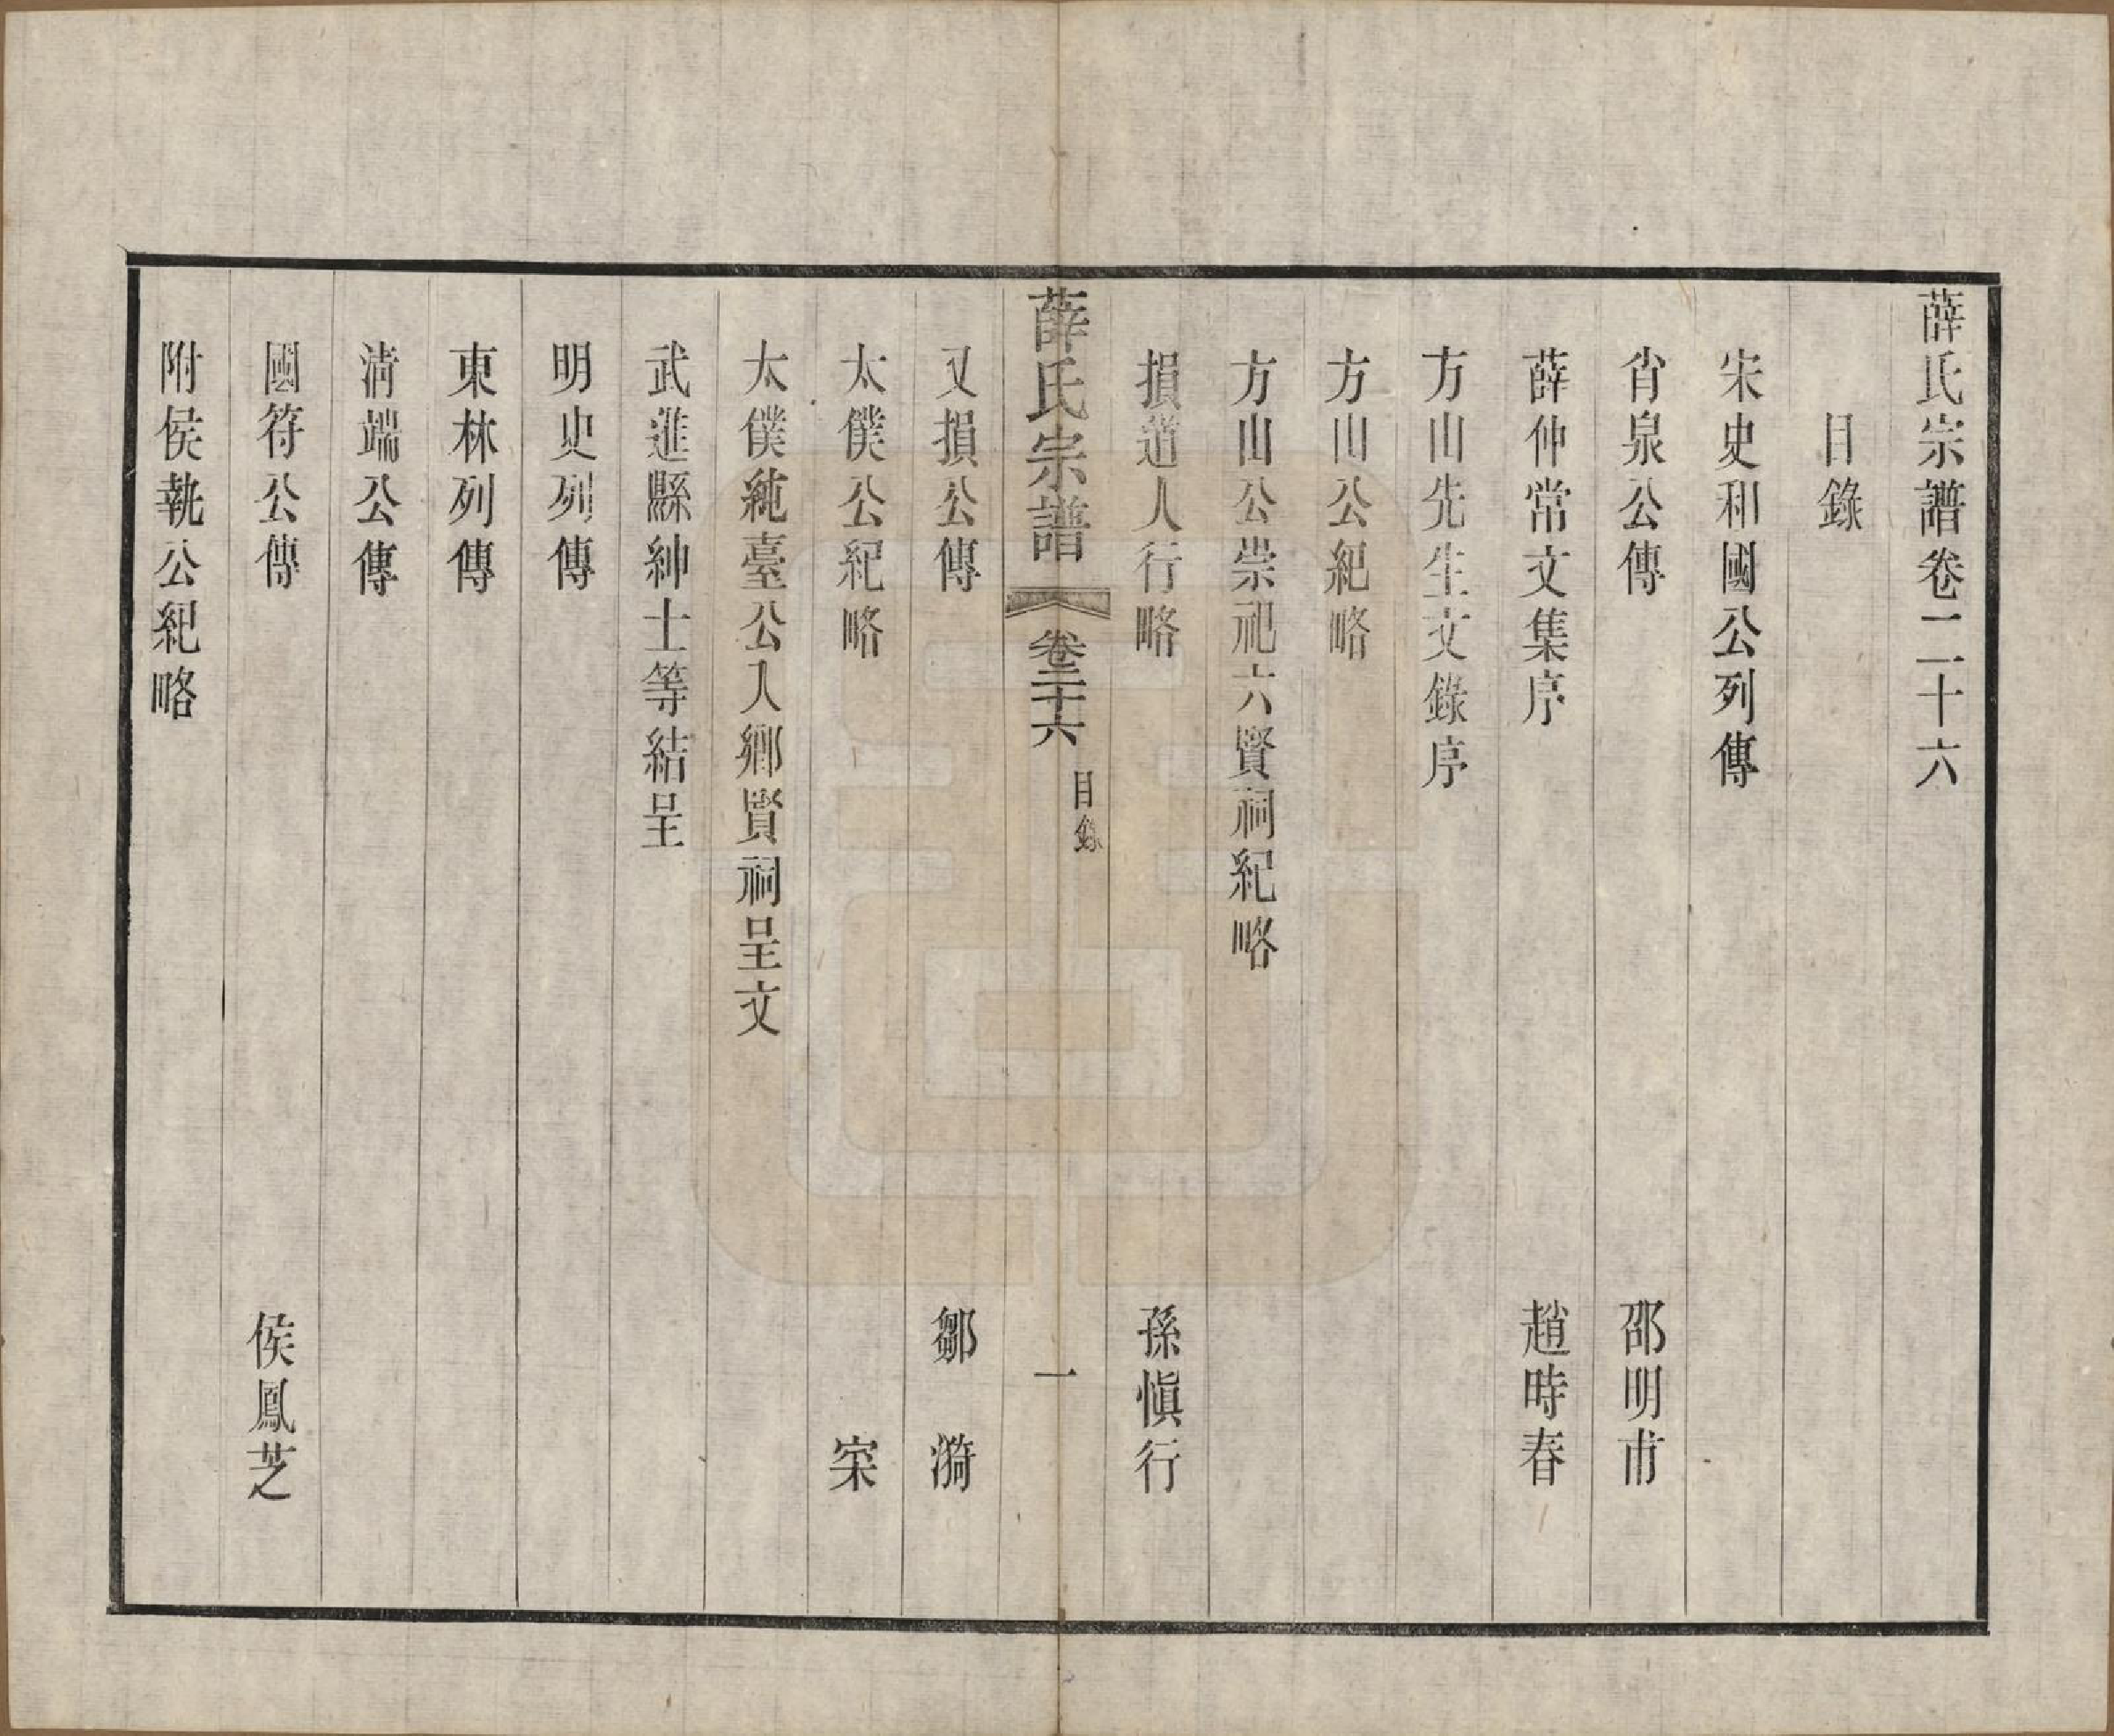 薛氏宗譜卷二十六
目錄
宋史和國公列傳
肖泉公傳 邵明甫
薛仲常文集序 趙時春
方山先生文錄序
方山公紀略
方山公崇祀六賢祠紀略
損道人行略 孫慎行
薛氏宗譜 卷二十六 目錄 一
又損公傳 鄒漪
太僕公紀略 宷
太僕純臺公入鄉賢祠呈文
武進縣紳士等結呈
明史列傳
東林列傳
清端公傳
國符公傳 侯鳳芝
附侯執公紀略